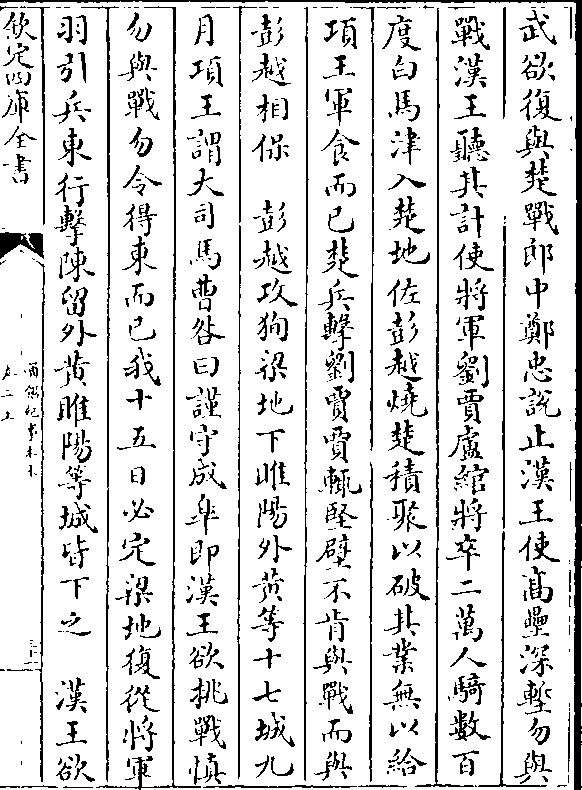 武欲復與楚戰郎中鄭忠說止漢王使高壘深塹勿與
戰漢王聽其計使將軍劉賈盧綰將卒二萬人騎數百
度白馬津入楚地佐彭越燒楚積聚以破其業無以給
項王軍食而已楚兵擊劉賈賈輒堅壁不肯與戰而與
彭越相保　彭越攻徇梁地下睢陽外黄等十七城九
月項王謂大司馬曹咎曰謹守成臯即漢王欲挑戰慎
勿與戰勿令得東而已我十五日必定梁地復從將軍
羽引兵東行擊陳留外黄睢陽等城皆下之　漢王欲
欽定四庫全書